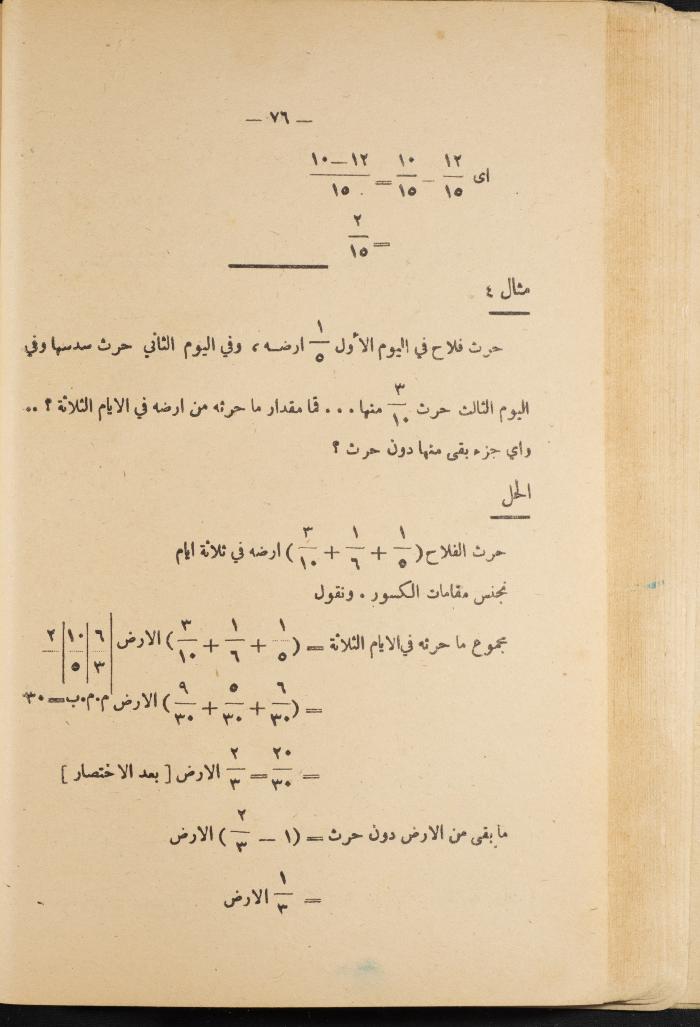 — ٧٦ —
اى ١٢/١٥ – ١٠/١٥ = ١٢–١٠/١٥
= ٢/١٥
مثال ٤
حرث فلاح في اليوم الأول ١/٥ ارضه، وفي اليوم الثاني حرث سدسها وفي
اليوم الثالث حرث ٣/١٠ منها ... فما مقدار ما حرثه من ارضه في الايام الثلاثة ؟ ..
واي جزء بقى منها دون حرث ؟
الحل
حرث الفلاح (١/٥ + ١/٦ + ٣/١٠) ارضه في ثلاثة ايام
نجنس مقامات الكسور . ونقول
مجموع ما حرثه في الايام الثلاثة = (١/٥ + ١/٦ + ٣/١٠) الارض ٦ | ١٠ | ٢
٣ | ٥ | —
= (٦/٣٠ + ٥/٣٠ + ٩/٣٠) الارض م.م.ب = ٣٠
= ٢٠/٣٠ = ٢/٣ الارض [ بعد الاختصار ]
ما بقى من الارض دون حرث = (١ – ٢/٣) الارض
= ١/٣ الارض